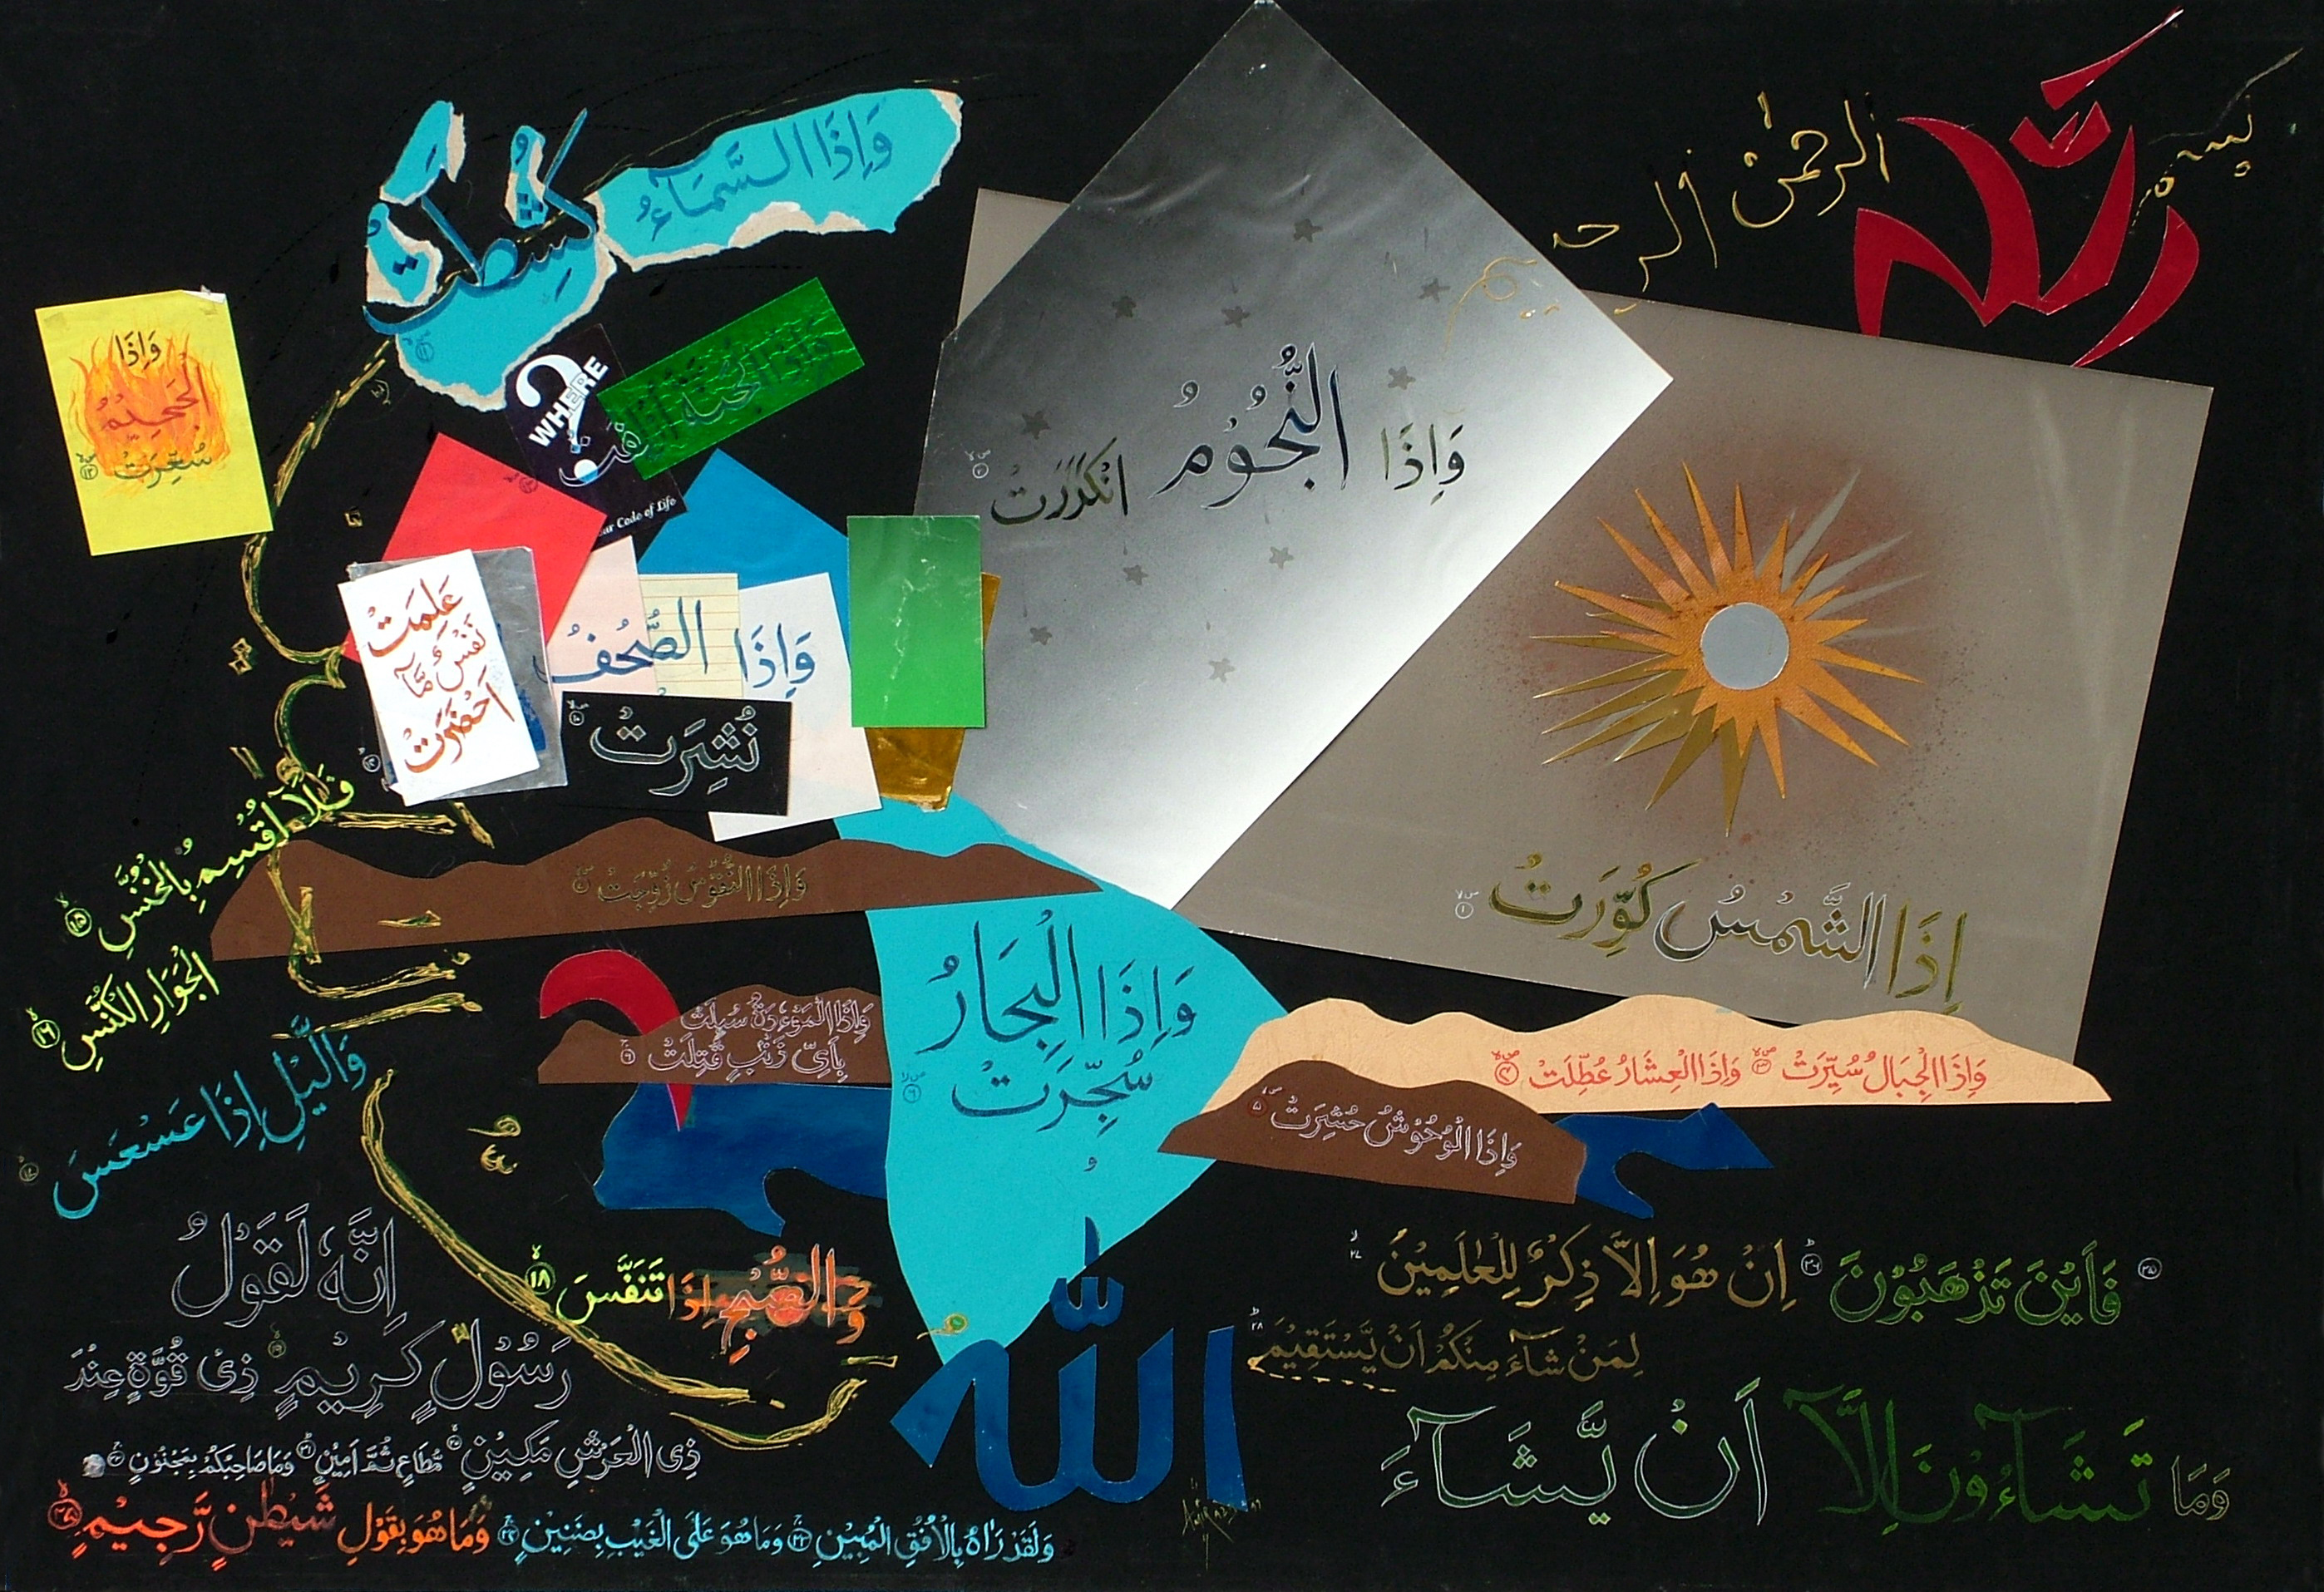 بسم الله الرحمن الرحيم
اِذَا الشَّمْسُ كُوِّرَتْ ۱
وَاِذَا النُّجُوْمُ انْكَدَرَتْ ۲
وَاِذَا الْجِبَالُ سُيِّرَتْ ۳ وَاِذَا الْعِشَارُ عُطِّلَتْ ۴
وَاِذَا الْوُحُوْشُ حُشِرَتْ ۵
وَاِذَا الْبِحَارُ
سُجِّرَتْ ۶
وَاِذَا النُّفُوْسُ زُوِّجَتْ ۷
وَاِذَا الْمَوْءٗدَةُ سُىِٕلَتْ
بِاَىِّ ذَنْۢبٍ قُتِلَتْ ۹
وَاِذَا الصُّحُفُ
نُشِرَتْ ۱۰
وَاِذَا السَّمَآءُ
كُشِطَتْ ۱۱
وَاِذَا
الْجَحِيْمُ
سُعِّرَتْ ۱۲
وَاِذَا الْجَنَّةُ اُزْلِفَتْ ۱۳
WHERE
?
ur Code of Life
عَلِمَتْ
نَفْسٌ مَّآ
اَحْضَرَتْ ۱۴
فَلَآ اُقْسِمُ بِالْخُنَّسِ ۱۵
الْجَوَارِ الْكُنَّسِ ۱۶
وَالَّيْلِ اِذَا عَسْعَسَ ۱۷
وَالصُّبْحِ اِذَا تَنَفَّسَ ۱۸
اِنَّهٗ لَقَوْلُ
رَسُوْلٍ كَرِيْمٍ ۱۹ ذِىْ قُوَّةٍ عِنْدَ
ذِى الْعَرْشِ مَكِيْنٍ ۲۰ مُّطَاعٍ ثَمَّ اَمِيْنٍ ۲۱ وَمَا صَاحِبُكُمْ بِمَجْنُوْنٍ ۲۲
وَلَقَدْ رَاٰهُ بِالْاُفُقِ الْمُبِيْنِ ۲۳ وَمَا هُوَ عَلَى الْغَيْبِ بِضَنِيْنٍ ۲۴ وَمَا هُوَ بِقَوْلِ شَيْطٰنٍ رَّجِيْمٍ ۲۵
فَاَيْنَ تَذْهَبُوْنَ ۲۶ اِنْ هُوَ اِلَّا ذِكْرٌ لِّلْعٰلَمِيْنَ ۲۷
لِمَنْ شَآءَ مِنْكُمْ اَنْ يَّسْتَقِيْمَ ۲۸
وَمَا تَشَآءُوْنَ اِلَّآ اَنْ يَّشَآءَ
اللّٰه